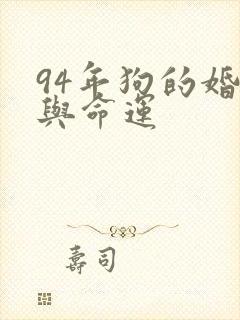 94年狗的婚
與命運
壽司